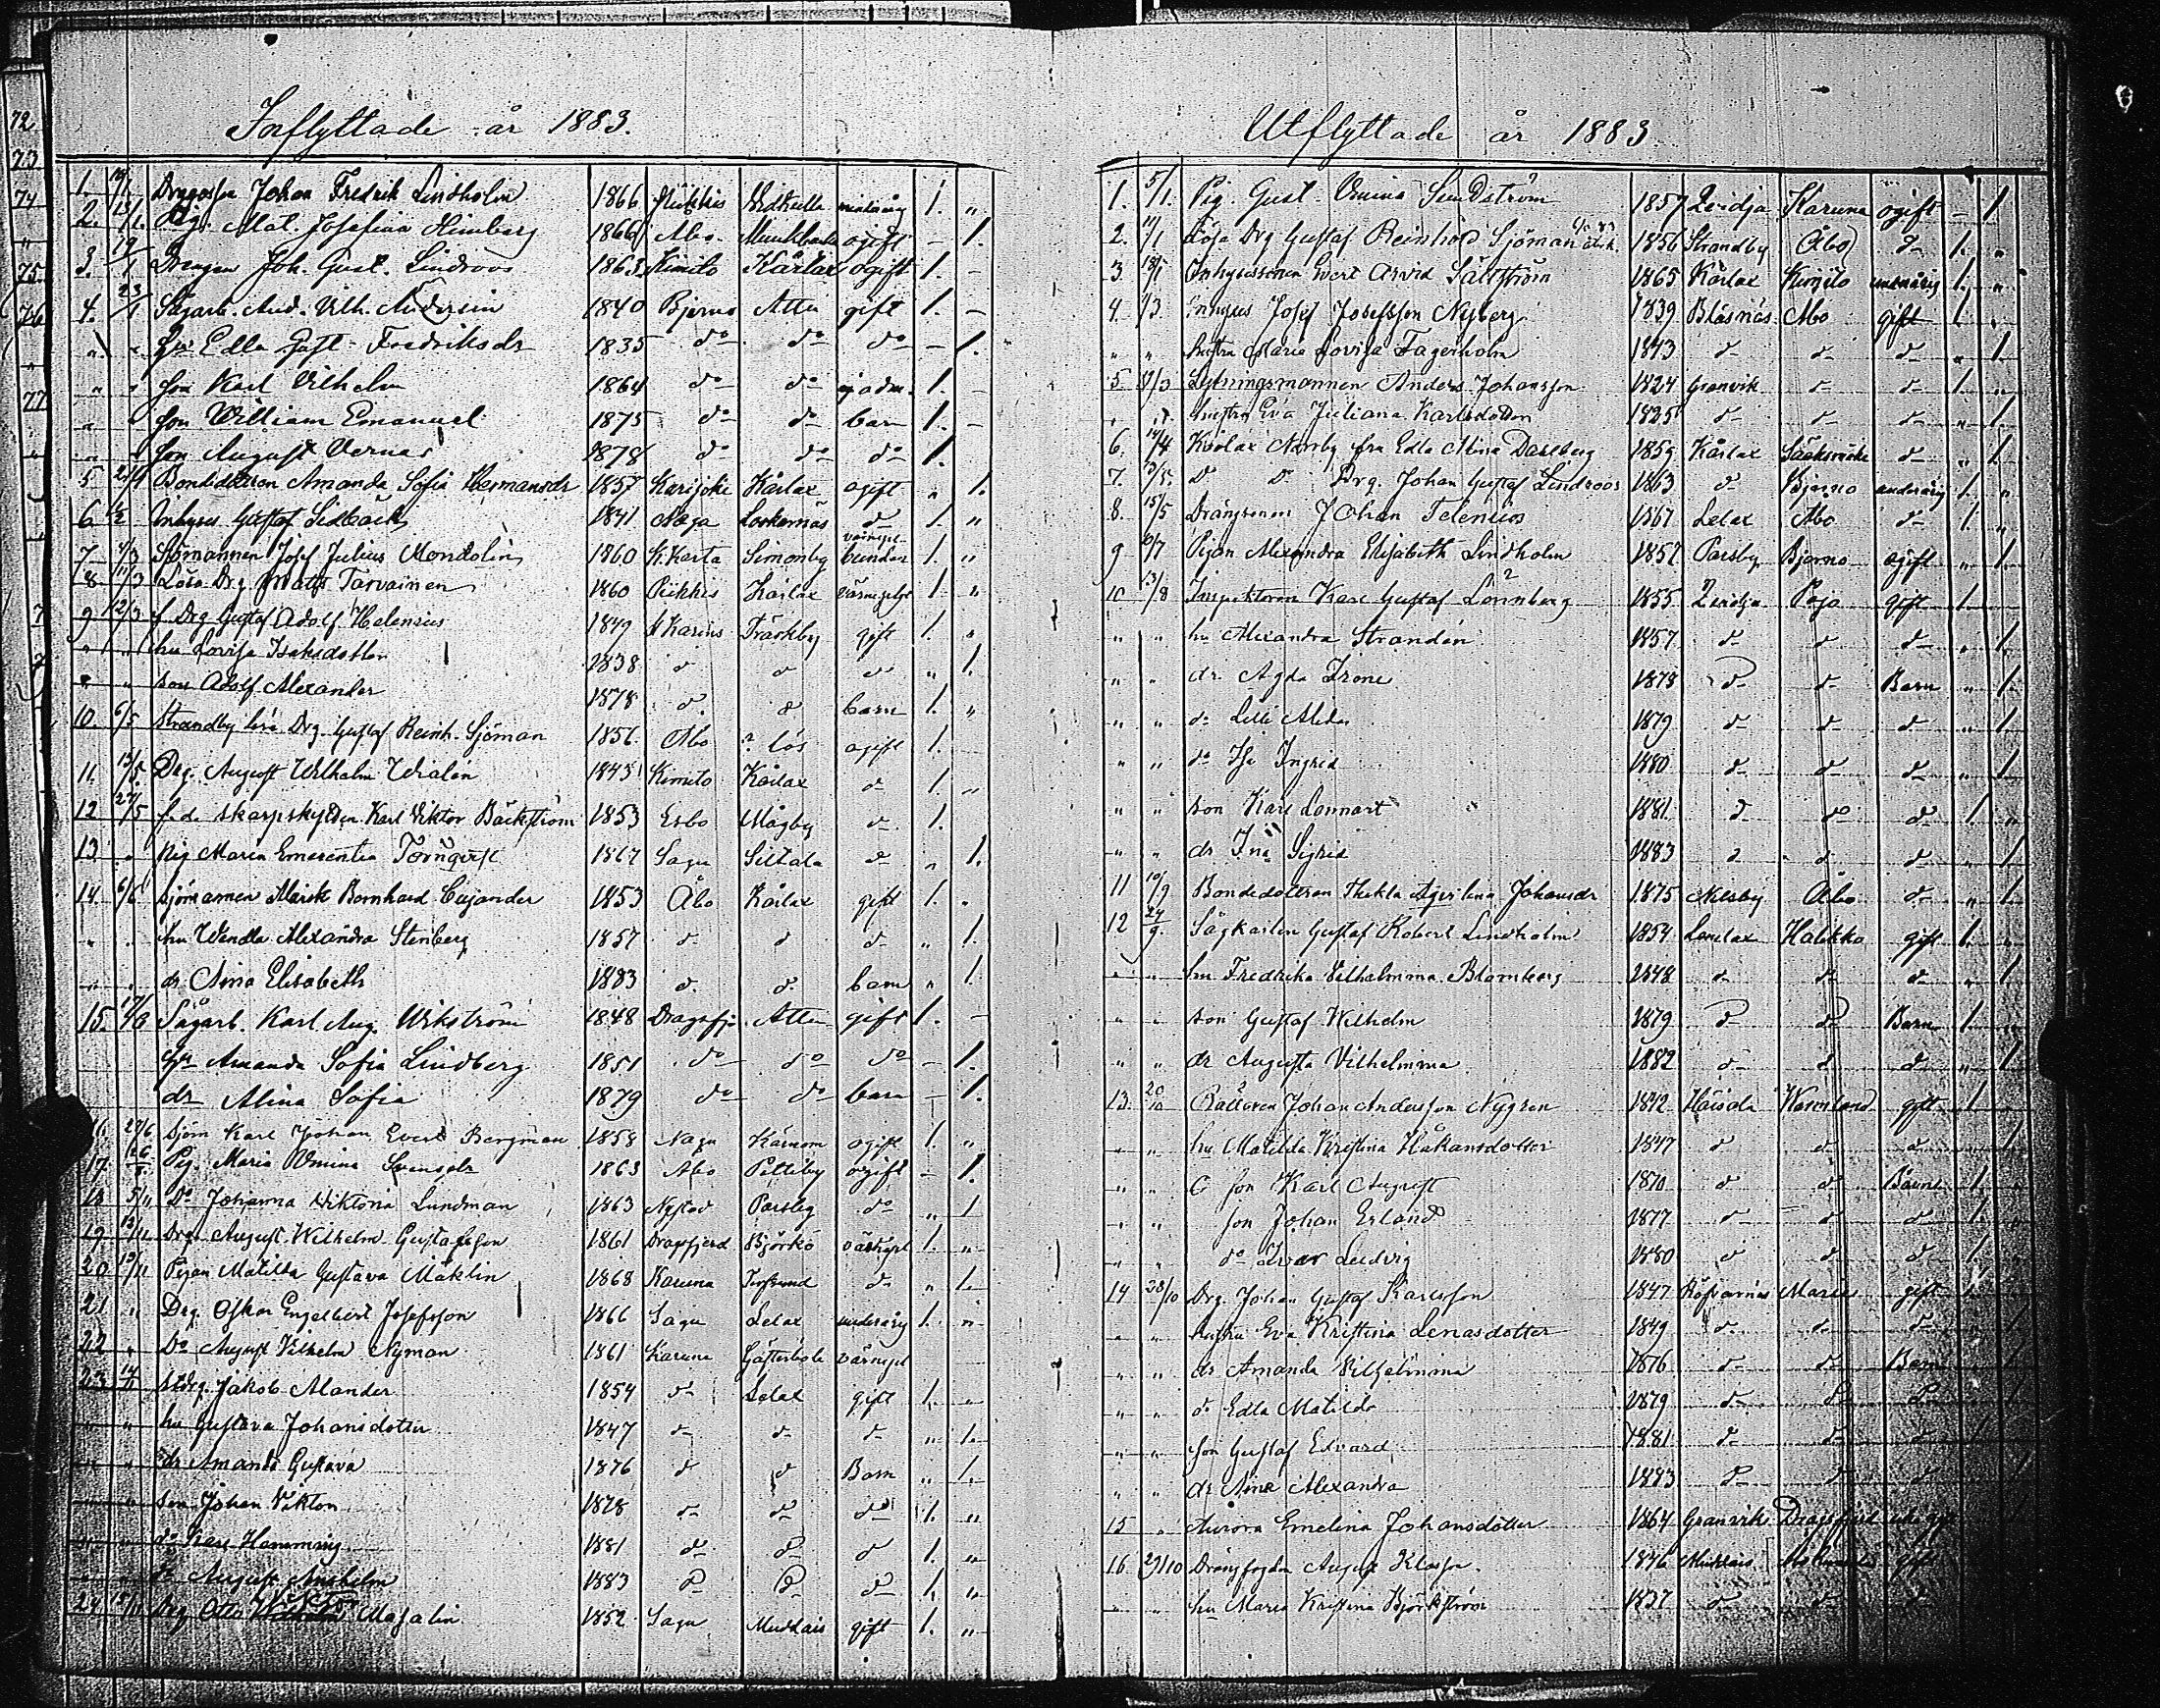 Inflyttade år 1883.
1. Johan Fredrik Lindholm 1866 Pikkis 1. "
2. Mat. Josefina Himberg 1866 Åbo ogift - 1.
3. 19/1 Drengen Joh. Gust. Lindroos 1863 Kimito Kårlax ogift 1. -
4. 23/1 Sågarb. And. Vilh. 1840 Bjerno Attu gift 1. -
" " Hu Edla Gust. Fredriksdr 1835 do do do - 1.
" " Son Karl Vilhelm 1864 do do ej adm. 1. -
" " Son William Emanuel 1875 do do barn 1. -
" " Son August Verner 1878 do do do 1.
5 Bondedottren Amanda Sofia Hermansdr 1857 Karijoki Kårlax ogift " 1.
6 Inhyses Gustaf Sidbäck 1841 Nagu Lockernäs d 1. "
7 4/3 Sjömannen Josef Julius Mondolin 1860 K. Karta Simonby värnepl. bunden 1. "
8 11/3 Lösa Drg Matts Tarvainen 1860 Pikkis Kårlax 1 "
9 12/3 f. Drg Gustaf Adolf Helenius 1849 St Karins Träskby gift 1. "
" " hu Lovisa Isaksdotter 1838 d d d " 1.
" " son Adolf Alexander 1878 d d barn 1. "
10. 6/5 Strandby löse Drg. Gustaf Reinh. Sjöman 1856 Åbo ? lös ogift 1.
11. 13/5 Drg. August Wilhelm 1845 Kimito Kårlax d 1. "
12 27/5 f.d. skarpskytten Karl Viktor Bäckström 1853 Esbo Mågby d 1.
13 " Pig Maria Emerentia Törnqvist 1867 Sagu Siltala d " 1.
14 6/6 Sjömannen Bernhard Cajander 1853 Åbo Kårlax gift 1. "
" " hu Wendla Alexandra Stenberg 1857 d d d " 1.
" " dr Aina Elisabeth 1883 d d barn " 1.
15. 17/6 Sågarb. Karl Aug. Wikström 1848 Dragsfj. Attu gift 1. -
Hu Amanda Sofia Lindberg 1851 do do do - 1.
dr Alina Sofia 1879 do do barn - 1.
16 27/6 Sjöm Karl Johan Evert Bergman 1858 Nagu ogift 1. "
17 Pig. Maria Svensdr 1863 Åbo Pettiby ogift - 1.
18 5/11 Do Johanna Viktoria Lundman 1863 Nystad Parsby do " 1
19 Drg. August Wilhelm Gustafsson 1861 Dragsfjerd Björkö 1. "
20 Pigan Matilda Gustava Mäklin 1868 Karuna d " 1.
21 " Drg. Oskar Engelbert Josefsson 1866 Sagu Lelax underårig 1. "
22 " Do August Vilhelm Nyman 1861 Karuna Gästerböle värnepl
23 14/11 Jakob Mander 1854 d Lelax gift 1. "
" " hu Gustava Johansdotter 1847 d d d " 1.
" " dr Amanda Gustava 1876 d d Barn " 1.
" " son Johan Viktor 1878 d d d 1. "
" " do Karl Hemming 1881 d d d 1. "
" " do August Anshelm 1883 d d d 1. "
24 15/11 Drg Otto Majalin 1852 Sagu Muddais gift 1. "
Utflyttade år 1883
1. 5/1. Pig. Gust. Sundström 1857 Qvidja Karuna ogift - 1
2. 11/1 Lösa Drg Gustaf Reinhold Sjöman 1856 Strandby Åbo d 1. "
3 18/1 Inhysessonen Evert Arvid Sällström 1865 Kårlax Kimito underårig 1. "
4. 1/3 Inhyses Josef Josefsson Nyberg 1839 Bläsnäs Åbo gift 1 "
" " hustru Maria Lovisa Fagerholm 1843 d d d " 1
5 Anders Johansson 1824 Granvik d d 1. "
" " hustru Eva Juliana Karlsdotter 1825 d d d " 1
6. 14/4 Norrby fru Edla Mina Dahlberg 1859 Kårlax Sääksmäki d " 1.
7. 13/5 D D Drg. Johan Gustaf Lindroos 1863 d Bjerno underårig 1. "
8. 15/5 Drängsonen Johan Telenius 1867 Lelax Åbo d 1 "
9 Pigan Alexandra Elisabeth Lindholm 1857 Parsby Bjerno ogift " 1
10 13/8 Inspektoren Karl Gustaf Lönnberg 1855 Qvidja Pojo gift 1
" " hu Alexandra Strandén 1857 d d d " 1.
" " dr. Agda Irene 1878 d d Barn " 1.
" " do Lilli Alida 1879 d d d " 1
" " do Ingrid 1880 d d d " 1
" " son Karl Lennart 1881. d d d 1. "
" " dr Ina Sigrid 1883 d d d " 1
11 10/9 Bondedottren Thekla Johansdr 1875 Nilsby Åbo d " 1.
12 24/9 Sågkarlen Gustaf Robert Lindholm 1854 Halikko gift 1. "
" " hu Fredrika Vilhelmina Blomberg 1848 d d d " 1
" " son Gustaf Wilhelm 1879 d d Barn 1. "
" " dr Augusta Vilhelmina 1882 d d d " 1.
13. 20/10 Johan Andersson Nygren 1842 Wermland gift 1. "
" " hu Matilda Kristina Håkansdotter 1847 d d d " 1
" " son Karl August 1870 d d Barn 1
" " son Johan Erland 1877 d d d 1.
" " do Ivar Ludvig 1880 d d d 1.
14 28/10 Drg. Johan Gustaf Karlsson 1847 gift 1
" " hustru Eva Kristina Lenasdotter 1849 d d d 1
" " dr Amanda Vilhelmina 1876 d d Barn 1
" " do Edla Matilda 1879 d d d 1
" " son Gustaf Edvard 1881 d d d 1
" " dr Aina Alexandra 1883 d d d 1
15 " Aurora Emelina Johansdotter 1864 Granvik Dragsfjerd
16 27/10 Drängfogden August Klasson 1846 Muddais gift
" " hu Maria Kristina Björkström 1837 d d d